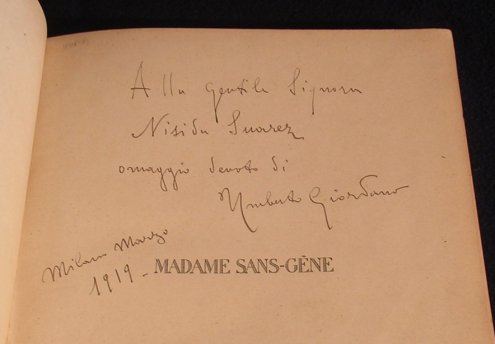 Alla gentile Signora
Nisida Suarez
omaggio devoto di
Umberto Giordano
Milano Marzo
1919 -
MADAME SANS-GÊNE